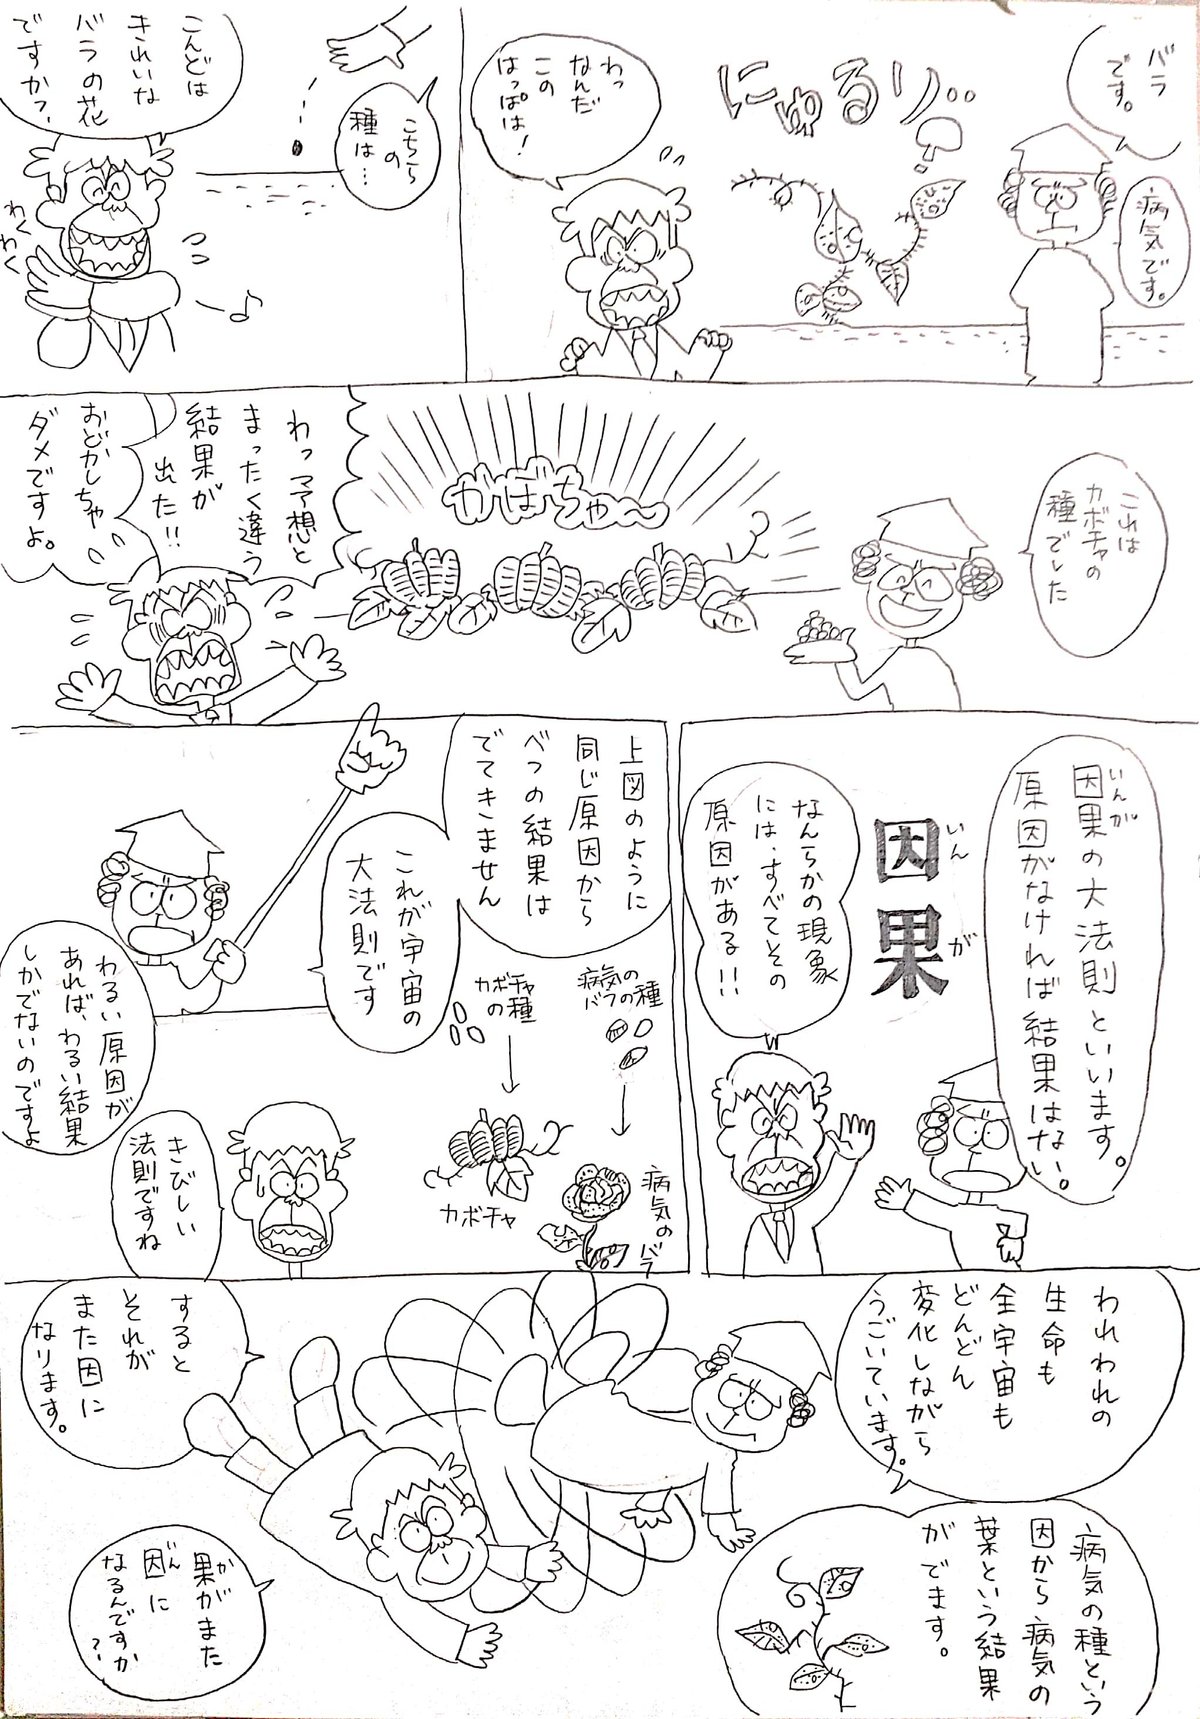 バラ
です。
病気です。
にゅるり
わっ
なんだ
この
はっぱは!
こちら
の
種は…
こんどは
きれいな
バラの花
ですかっ、
わく
わく
これは
カボチャの
種でした
かぼちゃ〜
わっ予想と
まったく違う
結果が
出た!!
おどかしちゃ
ダメですよ。
因果の大法則といいます。
いんが
原因がなければ結果はない。
因果
いんが
なんらかの現象
には、すべてその
原因がある!!
上図のように
同じ原因から
べつの結果は
でてきません
これが宇宙の
大法則です
病気の
バラの種
病気の
バラ
カボチャ
の種
カボチャ
わるい原因が
あれば、わるい結果
しかでないのですよ
きびしい
法則ですね
われわれの
生命も
全宇宙も
どんどん
変化しながら
うごいています。
病気の種という
因から病気の
葉という結果
がでます。
すると
それが
また因に
なります。
果がまた
か
因に
いん
なるんですか
?